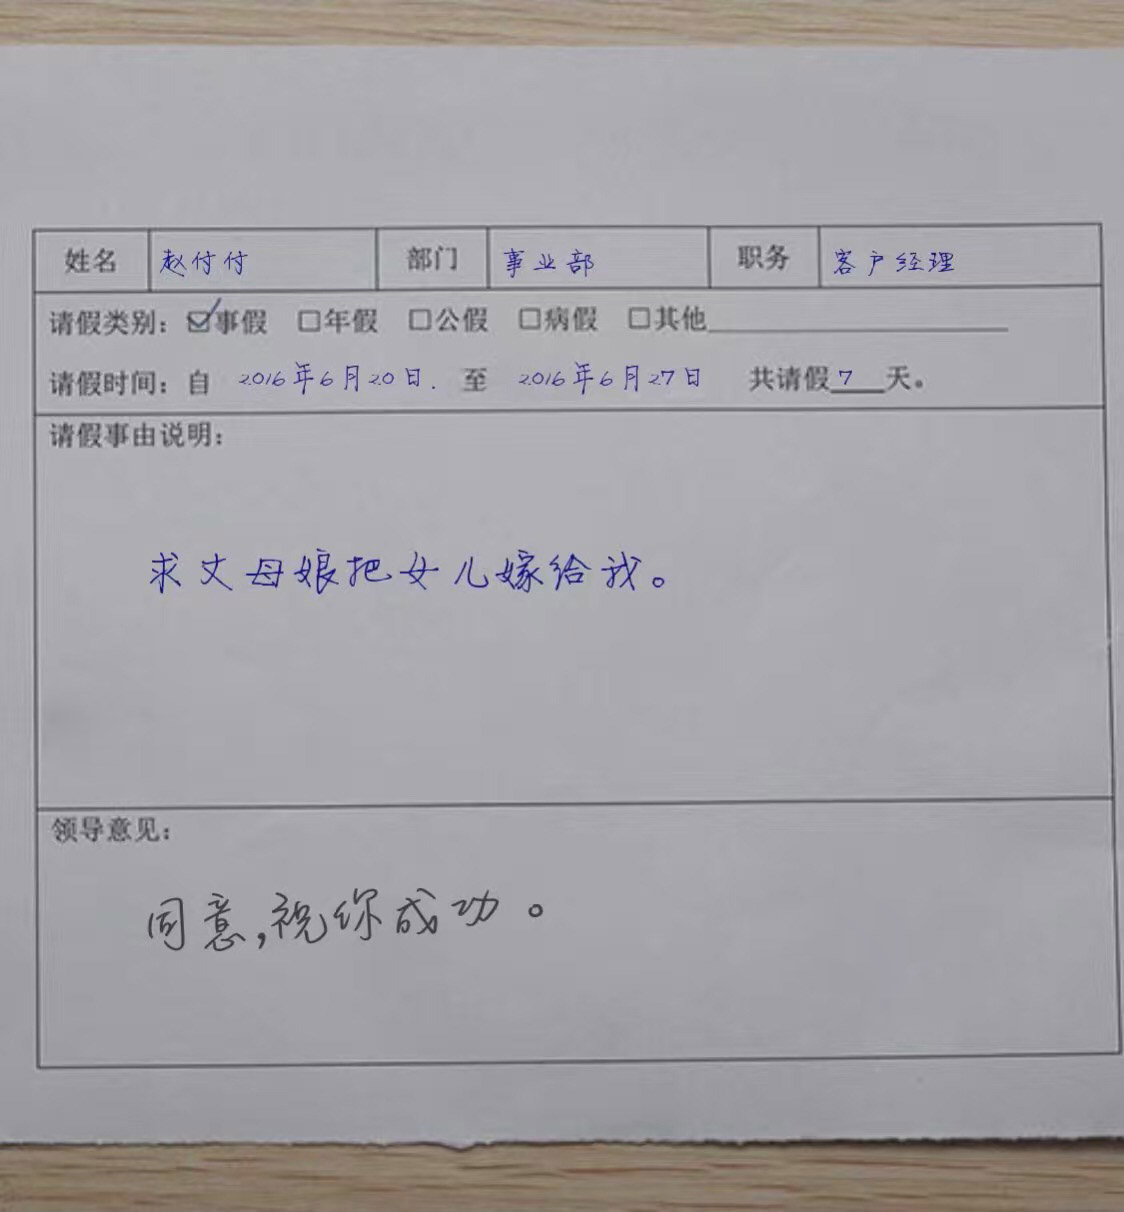 姓名 赵付付 部门 事业部 职务 客户经理
请假类别：☑事假 □年假 □公假 □病假 □其他
请假时间：自 2016年6月20日. 至 2016年6月27日 共请假7天。
请假事由说明：
求丈母娘把女儿嫁给我。
领导意见：
同意,祝你成功。